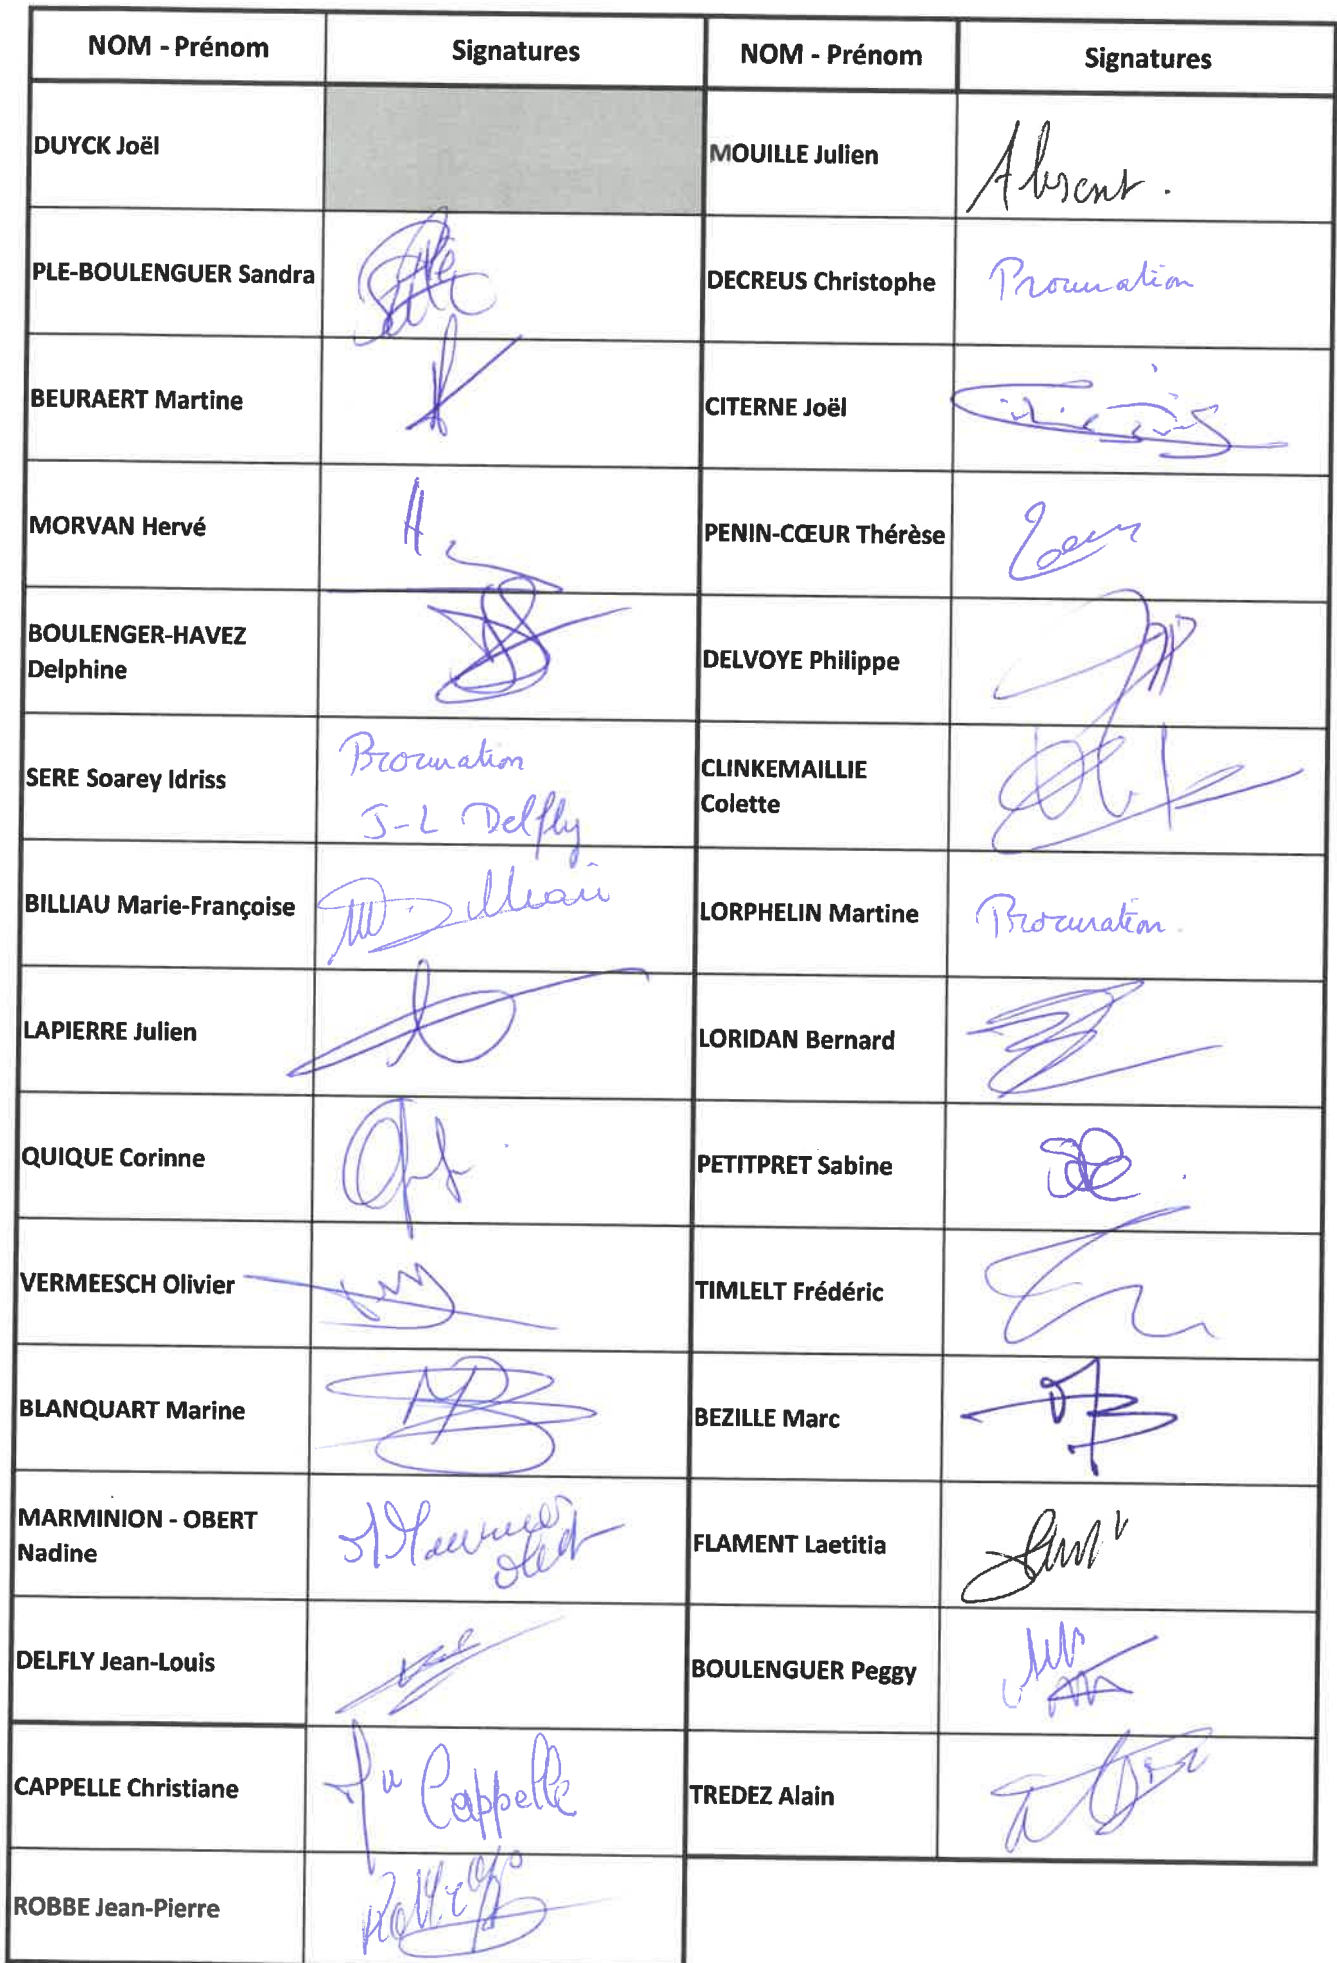 NOM - Prénom Signatures NOM - Prénom Signatures
DUYCK Joël MOUILLE Julien Absent.
PLE-BOULENGUER Sandra DECREUS Christophe Procuration
BEURAERT Martine CITERNE Joël
MORVAN Hervé PENIN-CŒUR Thérèse Coeur
BOULENGER-HAVEZ
Delphine DELVOYE Philippe
SERE Soarey Idriss Procuration
J-L Delfly CLINKEMAILLIE
Colette
BILLIAU Marie-Françoise LORPHELIN Martine Procuration.
LAPIERRE Julien LORIDAN Bernard
QUIQUE Corinne PETITPRET Sabine
VERMEESCH Olivier TIMLELT Frédéric
BLANQUART Marine BEZILLE Marc
MARMINION - OBERT
Nadine FLAMENT Laetitia
DELFLY Jean-Louis BOULENGUER Peggy
CAPPELLE Christiane Cappelle TREDEZ Alain
ROBBE Jean-Pierre